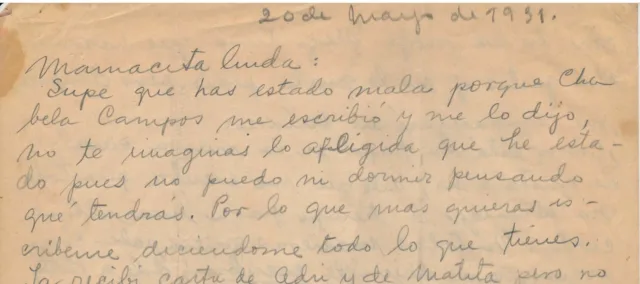 20 de Mayo de 1931.
Mamacita linda:
Supe que has estado mala porque Cha-
bela Campos me escribió y me lo dijo,
no te imaginas lo afligida que he esta-
do pues no puedo ni dormir pensando
qué tendrás. Por lo que mas quieras es-
cribeme diciéndome todo lo que tienes.
Ya recibí carta de Adri y de Matita pero no